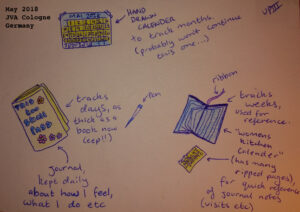 May 2018
JVA Cologne
Germany
MAI 2018
HAND
DRAWN
CALENDER
to track months
(probably won't continue
this one...)
ribbon
tracks
days, as
thick as a
book now
(eep!!)
pen
tracks
weeks,
used for
reference.
"womens
kitchen
Calender"
(has many
ripped pages)
for quick reference
of journal notes
(visits etc)
journal,
kept daily
about how I feel,
what I do etc